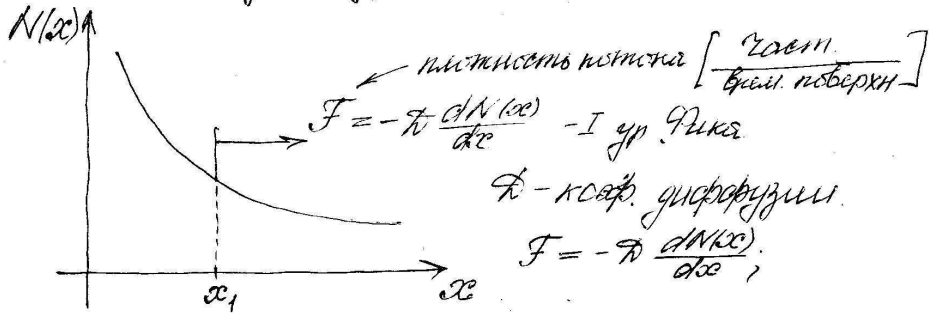 N(x)
плотность потока [част. / врем. поверхн]
F = -D dN(x)/dx - I ур. Фика
D - коэф. диффузии.
F = -D dN(x)/dx ;
x₁
x